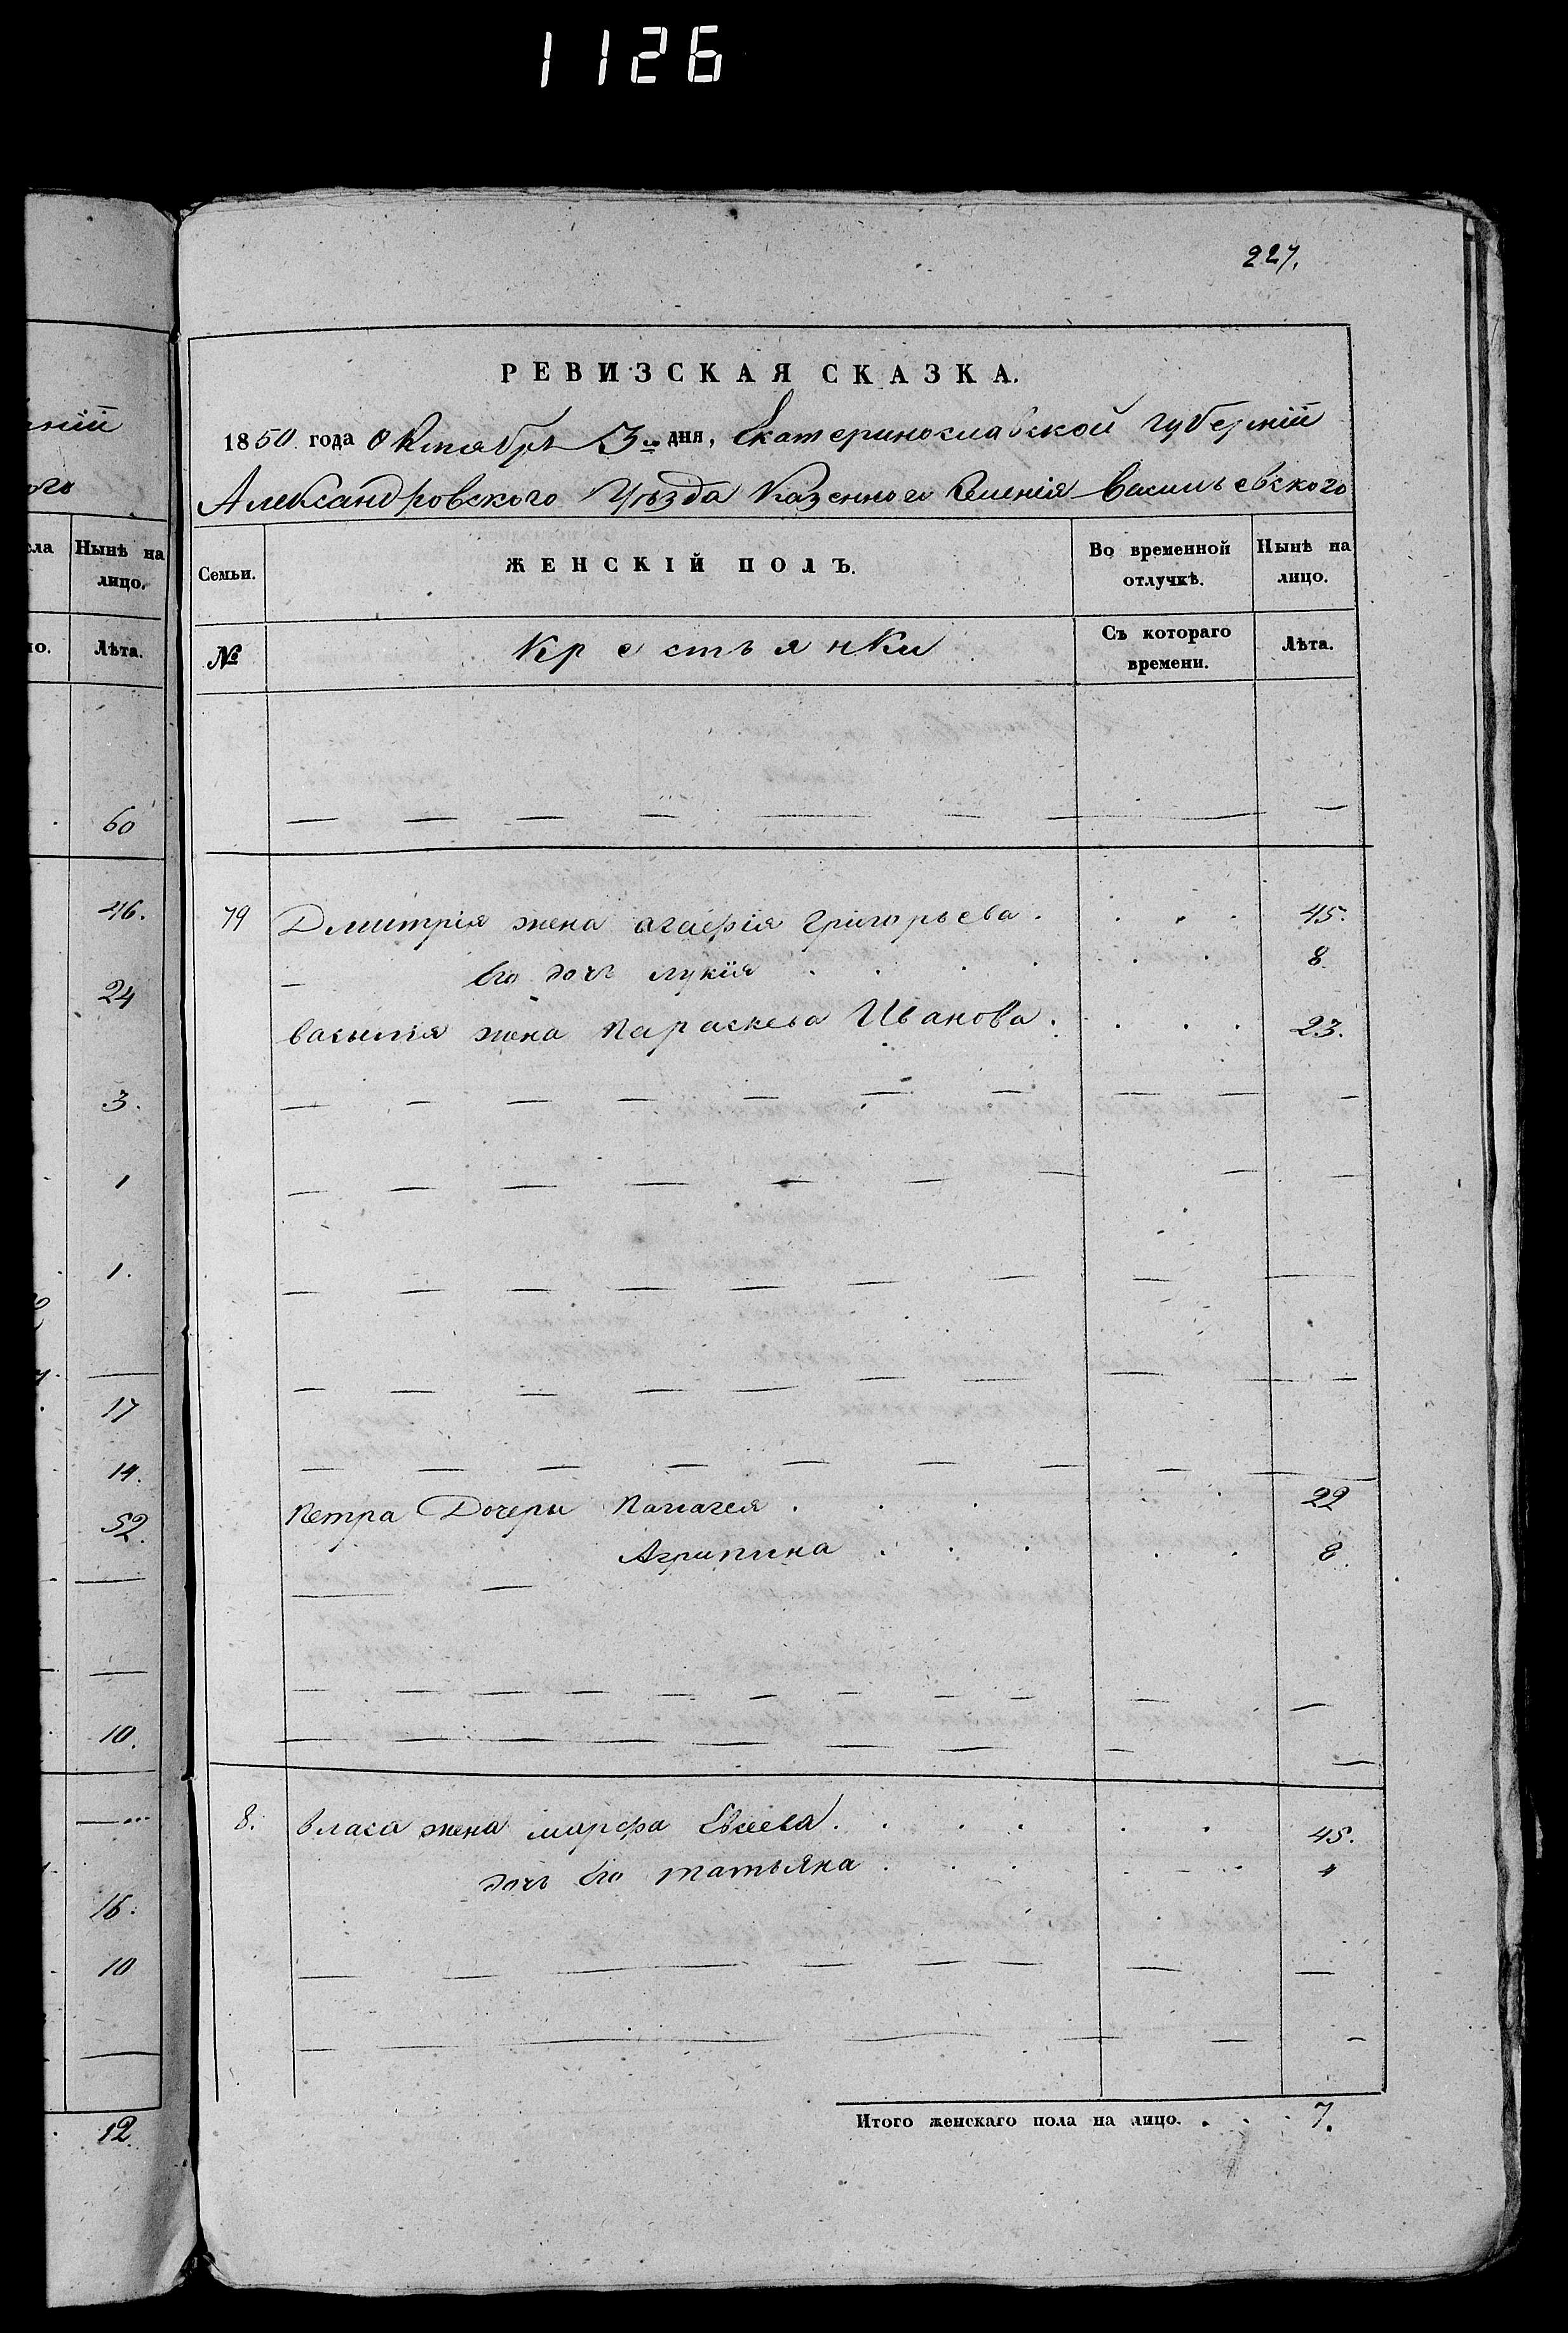 1126
227.
РЕВИЗСКАЯ СКАЗКА.
1850 года Октября 3го дня, Екатеринославской губерніи
Александровского Уѣзда Казенного Селенія Васильевского
Семьи.
ЖЕНСКІЙ ПОЛЪ.
Во временной отлучкѣ.
Нынѣ на лицо.
№
Крестьянки
Съ котораго времени.
Лѣта.
79 Дмитрія жена агафія Григорьева . . . . 45.
Его дочь лукія . . . . . . 8.
василія жена Параскева Иванова . . . . 23.
Петра Дочери Палагея . . . . . 22
Агрипина . . . . . 8.
8. власа жена марфа Евсеева . . . . . . 45.
дочь Его татьяна . . . . . . 4
Итого женскаго пола на лицо. . . . 7.
ній
ого
ла
Нынѣ на
лицо.
ло.
Лѣта.
60
46.
24
3.
1
1.
17
14.
52.
10.
16.
10
12.